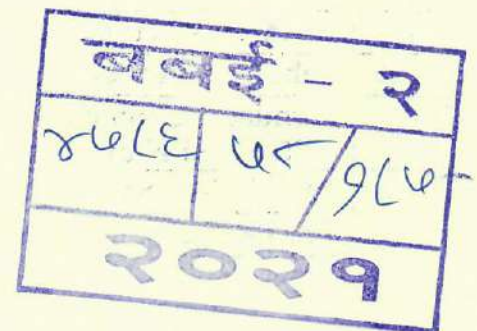 बबई - २
४७८६ ५८/१८५
२०२१